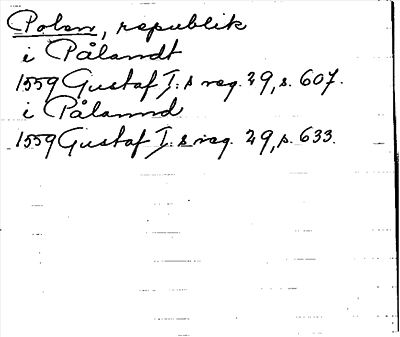 Polen, republik
i Pålandt
1559 Gustaf I:s reg. 29, s. 607.
i Pålannd
1559 Gustaf I:s reg. 29, s. 633.